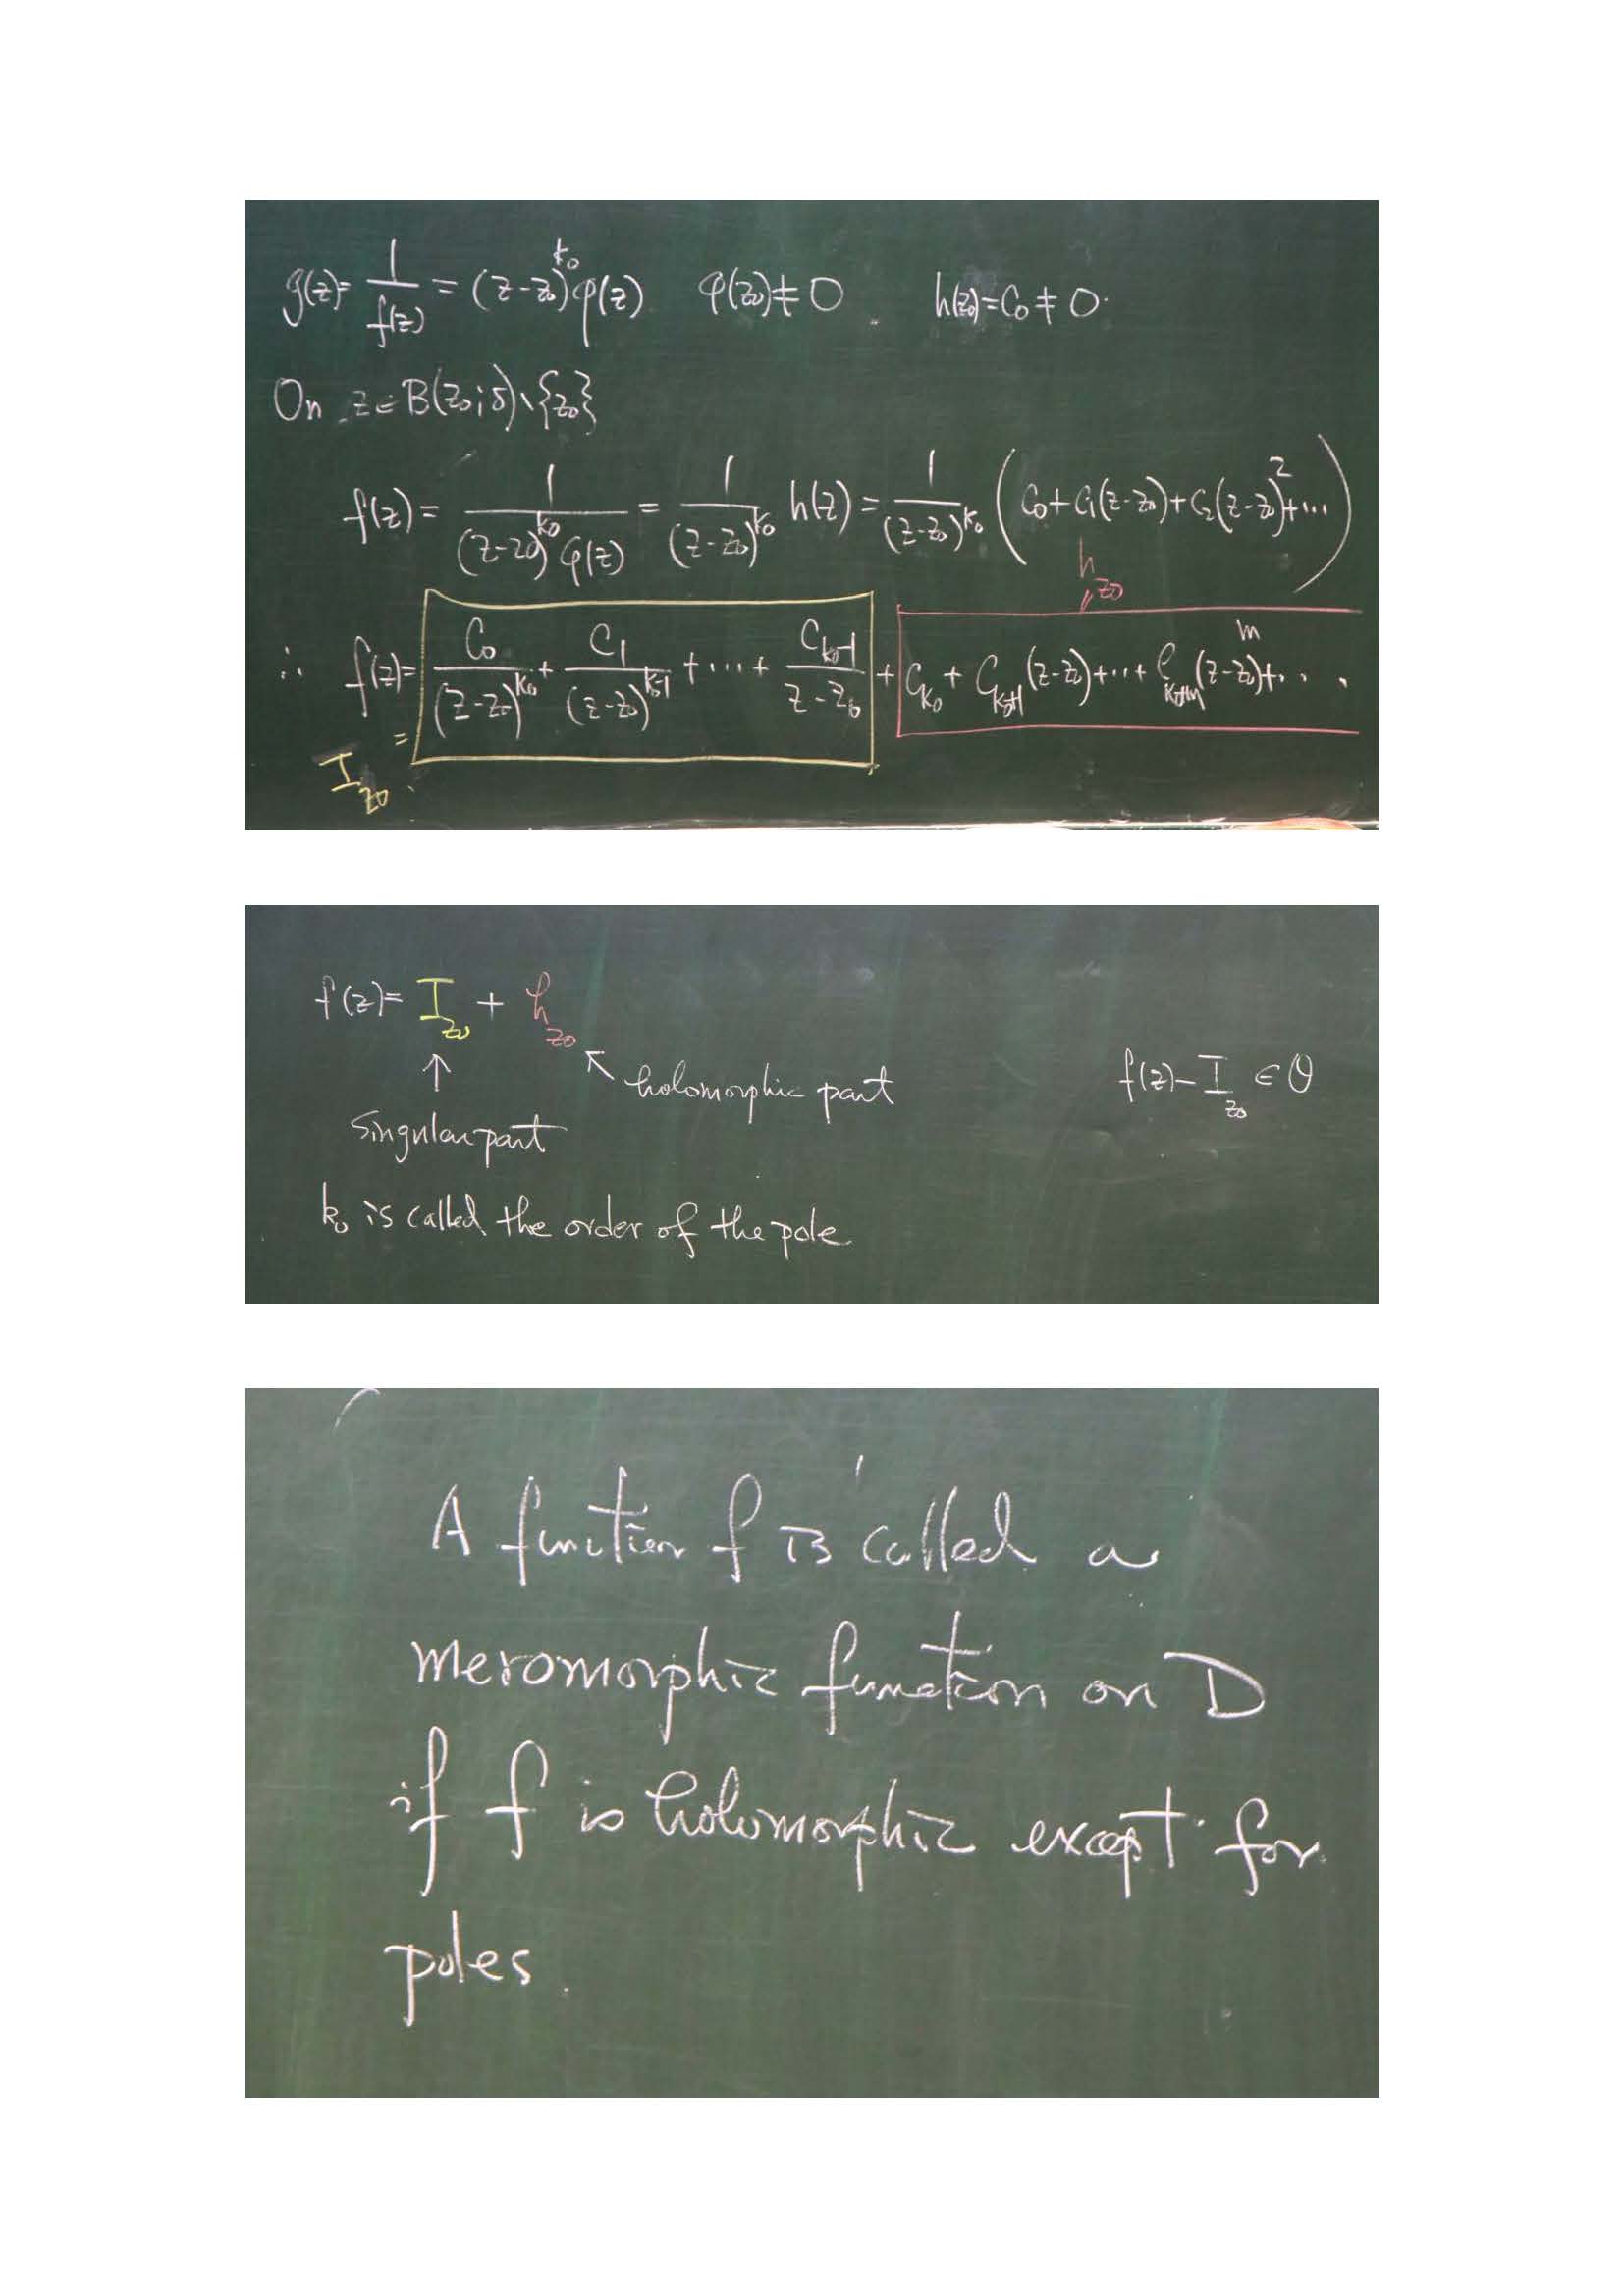 g(z) = 1/f(z) = (z-z₀)^k₀ φ(z)   φ(z₀) ≠ 0.   h(z₀) = C₀ ≠ 0.
On z ∈ B(z₀; δ) \ {z₀}
f(z) = 1/((z-z₀)^k₀ φ(z)) = 1/(z-z₀)^k₀ h(z) = 1/(z-z₀)^k₀ (C₀ + C₁(z-z₀) + C₂(z-z₀)² + ...)
h_z₀
∴ f(z) = C₀/(z-z₀)^k₀ + C₁/(z-z₀)^(k₀-1) + ... + C_(k₀-1)/(z-z₀) + C_k₀ + C_(k₀+1)(z-z₀) + ... + C_(k₀+m)(z-z₀)^m + ...
I_z₀ =
f(z) = I_z₀ + h_z₀
↑ ↖ holomorphic part   f(z) - I_z₀ ∈ O
Singular part
k₀ is called the order of the pole
A function f is called a
meromorphic function on D
if f is holomorphic except for
poles.